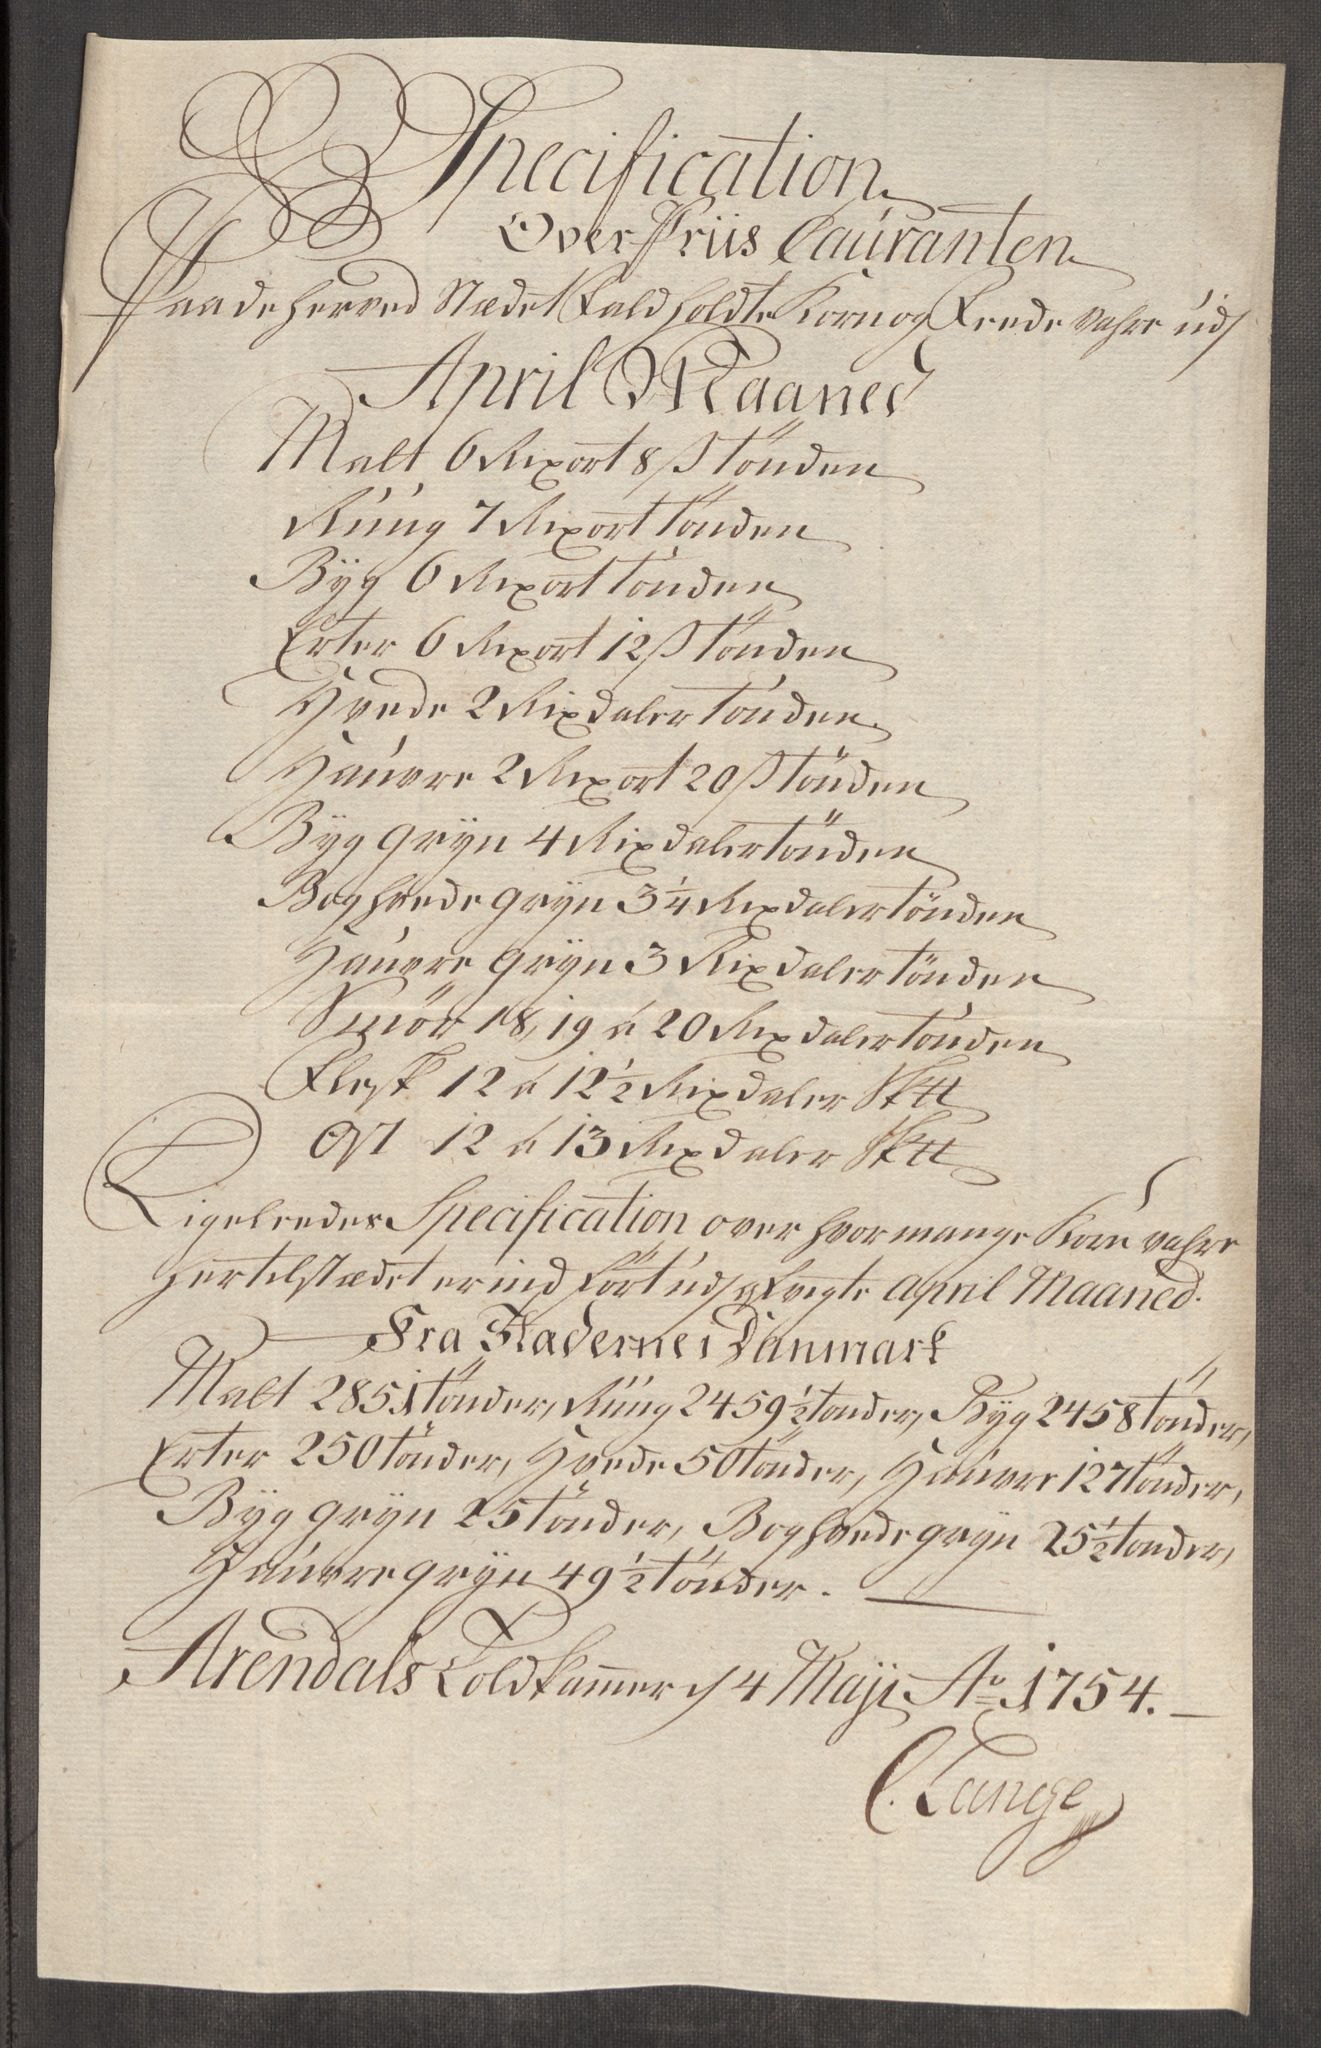 Specification
Over Priis Cauranten
Paa de herved Stædet Fald holdte Korn og Feede Vahre udj
April Maaned
Malt 6 Rixort 8 ß tönden
Rúúg 7 Rixort tönden
Byg 6 Rixort tönden
Erter 6 Rixort 12 ß tönden
Hvede 2 Rixdaler tönden
Haúvre 2 Rixort 20 ß tönden
Byg gryn 4 Rixdaler tönden
Boghvede gryn 3 1/4 Rixdaler tönden
Haúvre gryn 3 Rixdaler tönden
Smör 18, 19 à 20 Rixdaler tönden
Flesk 12 à 12 1/2 Rixdaler Sk℔
Ost 12 à 13 Rixdaler Sk℔
Ligeledes Specification over hvor mange Korn vahre
her til stædet er ind fört udj
April Maaned.
Fra Stæderne i Danmark
Malt 2851 tönder, Rúúg 2459 1/2 tönder, Byg 2458 tönder,
Erter 250 tönder, Hvede 50 tönder, Haúvre 127 tönder,
Byg gryn 25 tönder, Boghvede gryn 25 1/2 tönder,
Haúvre gryn 49 1/2 tönder.
Arendals Toldkammer d 4 Maji Ao 1754.
C. Lange